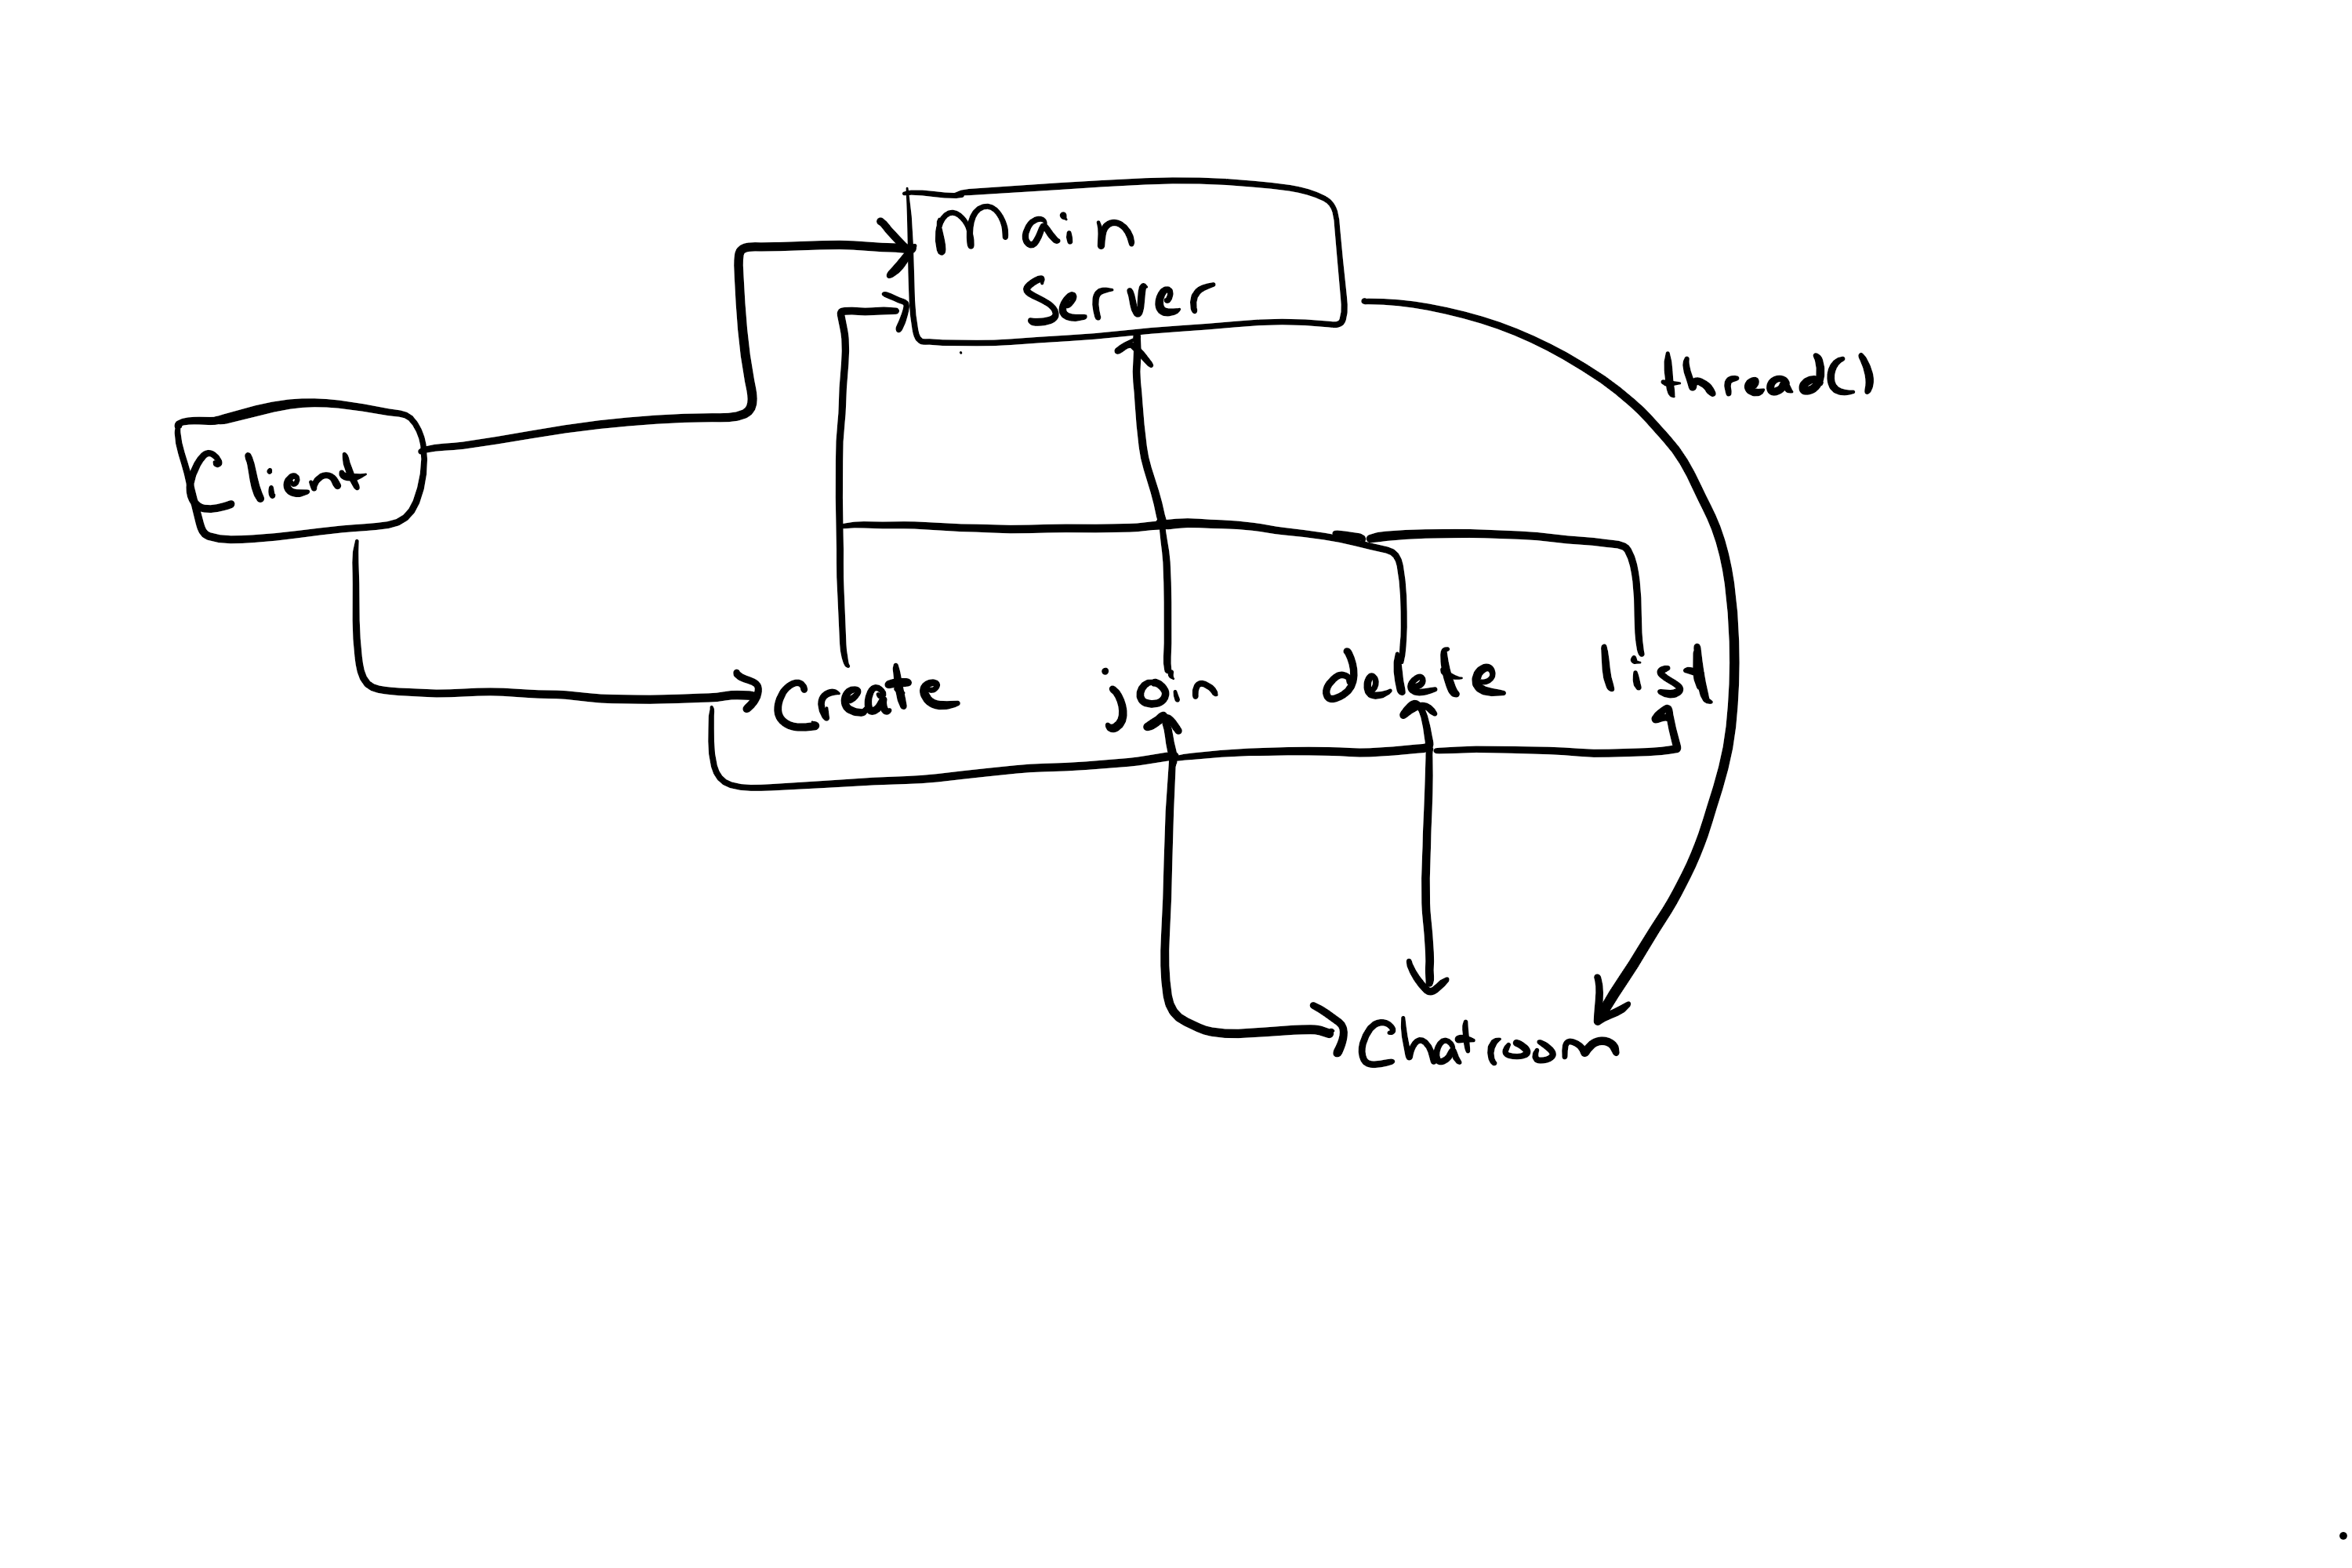 Main
Server
thread()
Client
Create join delete list
Chatroom